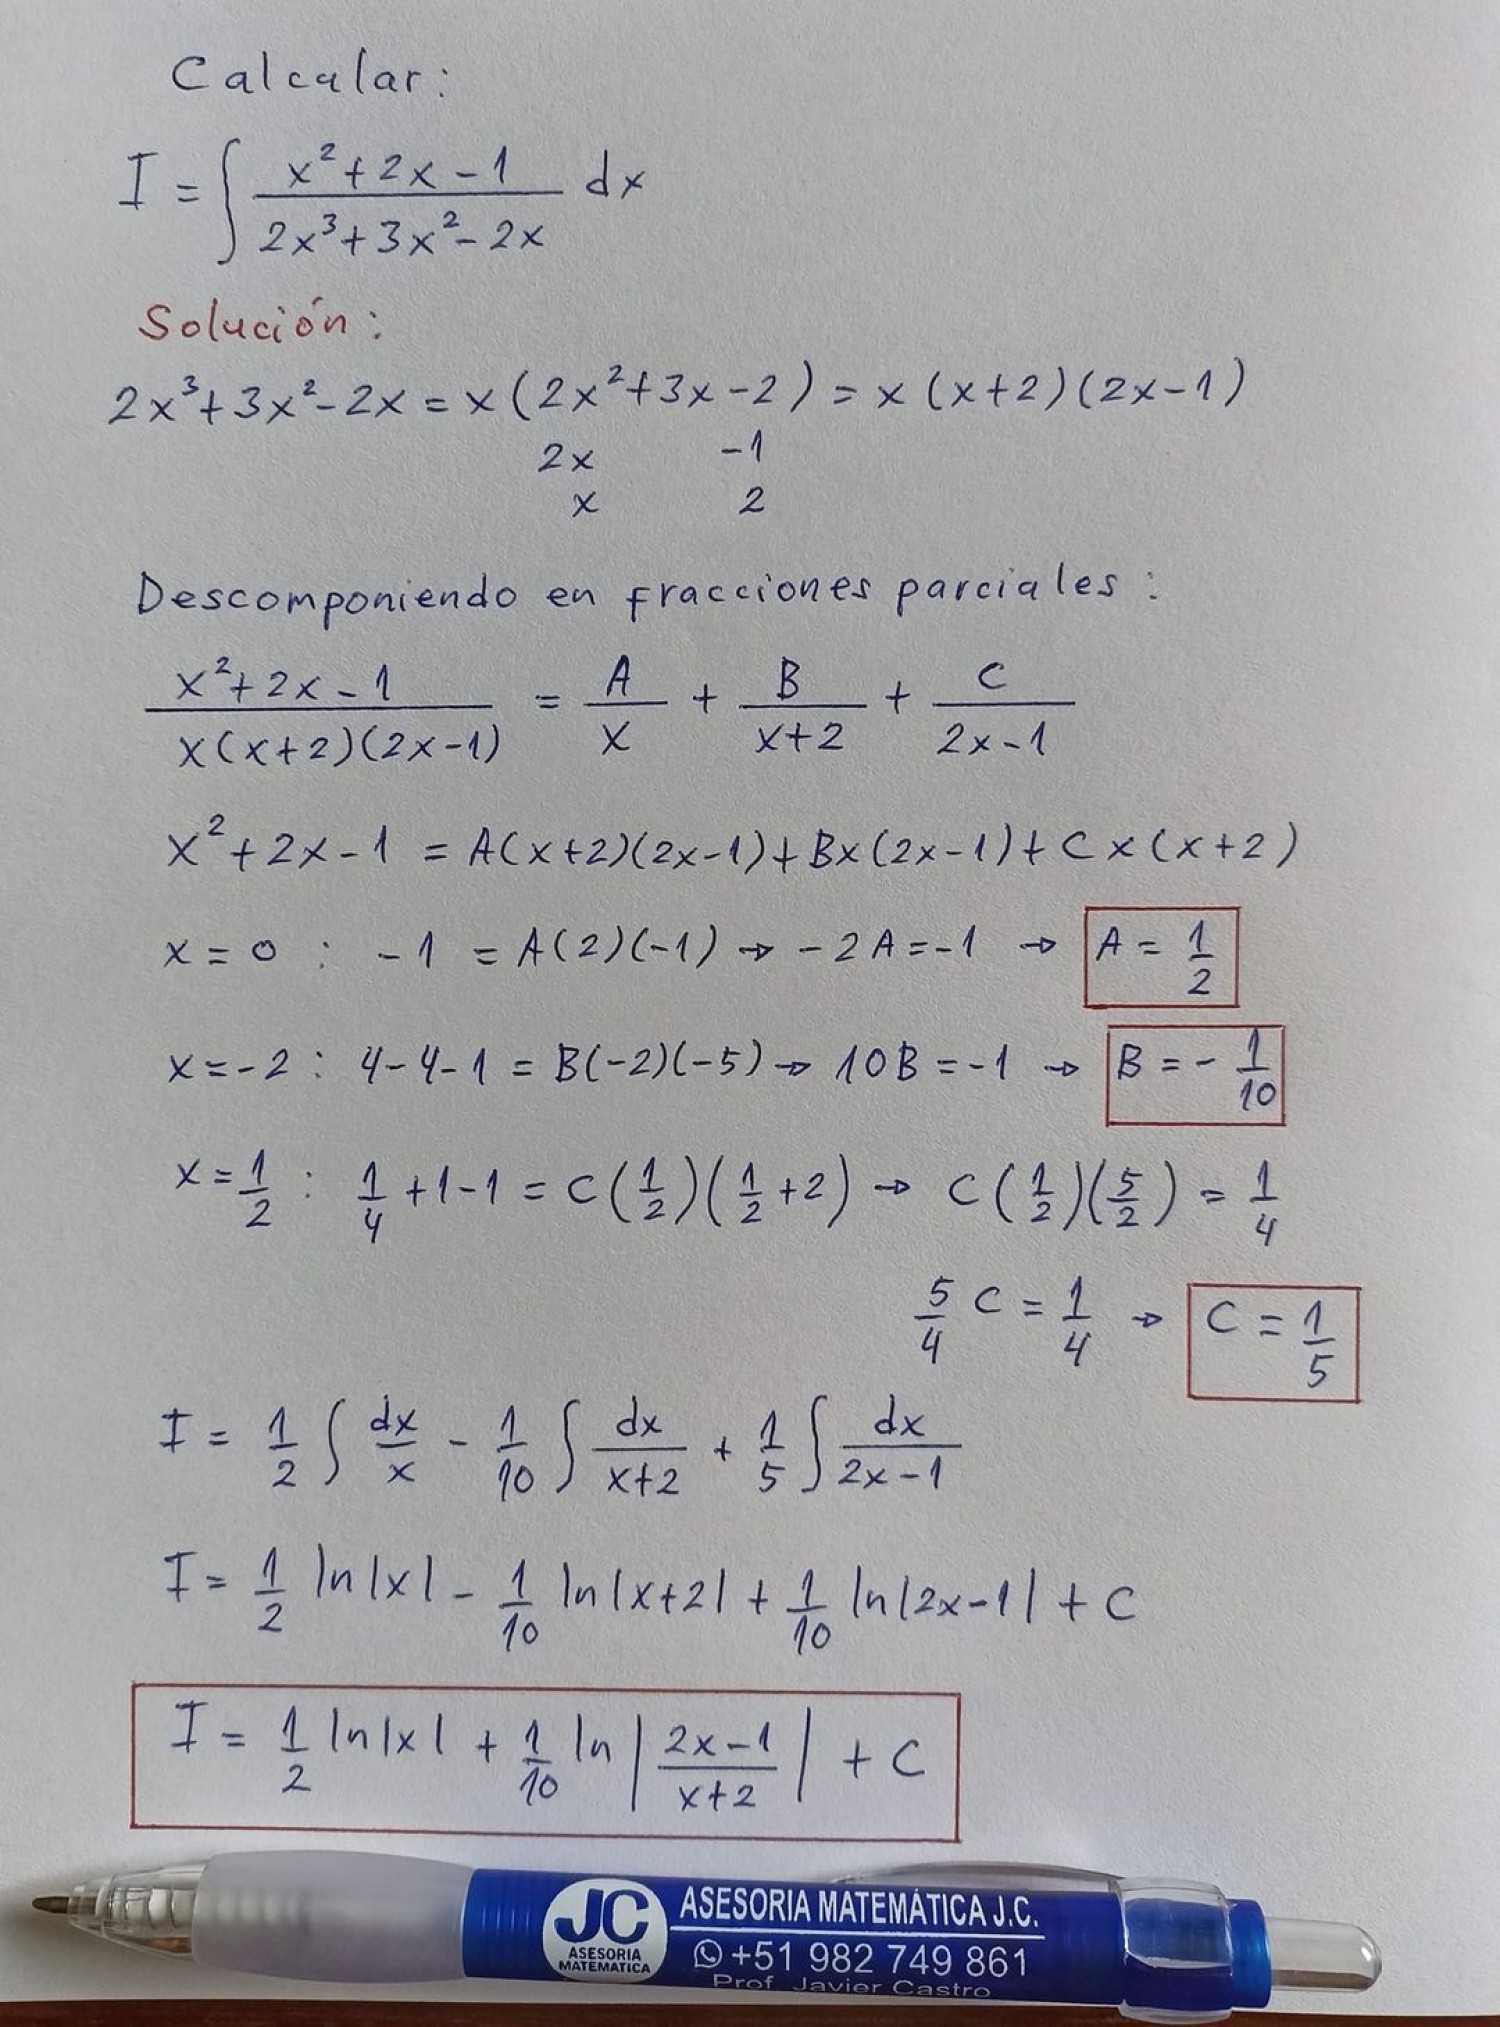 Calcular:
I = ∫ (x²+2x-1)/(2x³+3x²-2x) dx
Solución:
2x³+3x²-2x = x(2x²+3x-2) = x(x+2)(2x-1)
2x -1
x 2
Descomponiendo en fracciones parciales:
(x²+2x-1)/(x(x+2)(2x-1)) = A/x + B/(x+2) + C/(2x-1)
x²+2x-1 = A(x+2)(2x-1)+Bx(2x-1)+Cx(x+2)
x=0 : -1 = A(2)(-1) → -2A=-1 → A = 1/2
x=-2 : 4-4-1 = B(-2)(-5) → 10B=-1 → B = -1/10
x=1/2 : 1/4+1-1 = C(1/2)(1/2+2) → C(1/2)(5/2) = 1/4
5/4 C = 1/4 → C = 1/5
I = 1/2 ∫ dx/x - 1/10 ∫ dx/(x+2) + 1/5 ∫ dx/(2x-1)
I = 1/2 ln|x| - 1/10 ln|x+2| + 1/10 ln|2x-1| + C
I = 1/2 ln|x| + 1/10 ln|(2x-1)/(x+2)| + C
JC
ASESORIA
MATEMATICA
ASESORIA MATEMÁTICA J.C.
+51 982 749 861
Prof. Javier Castro